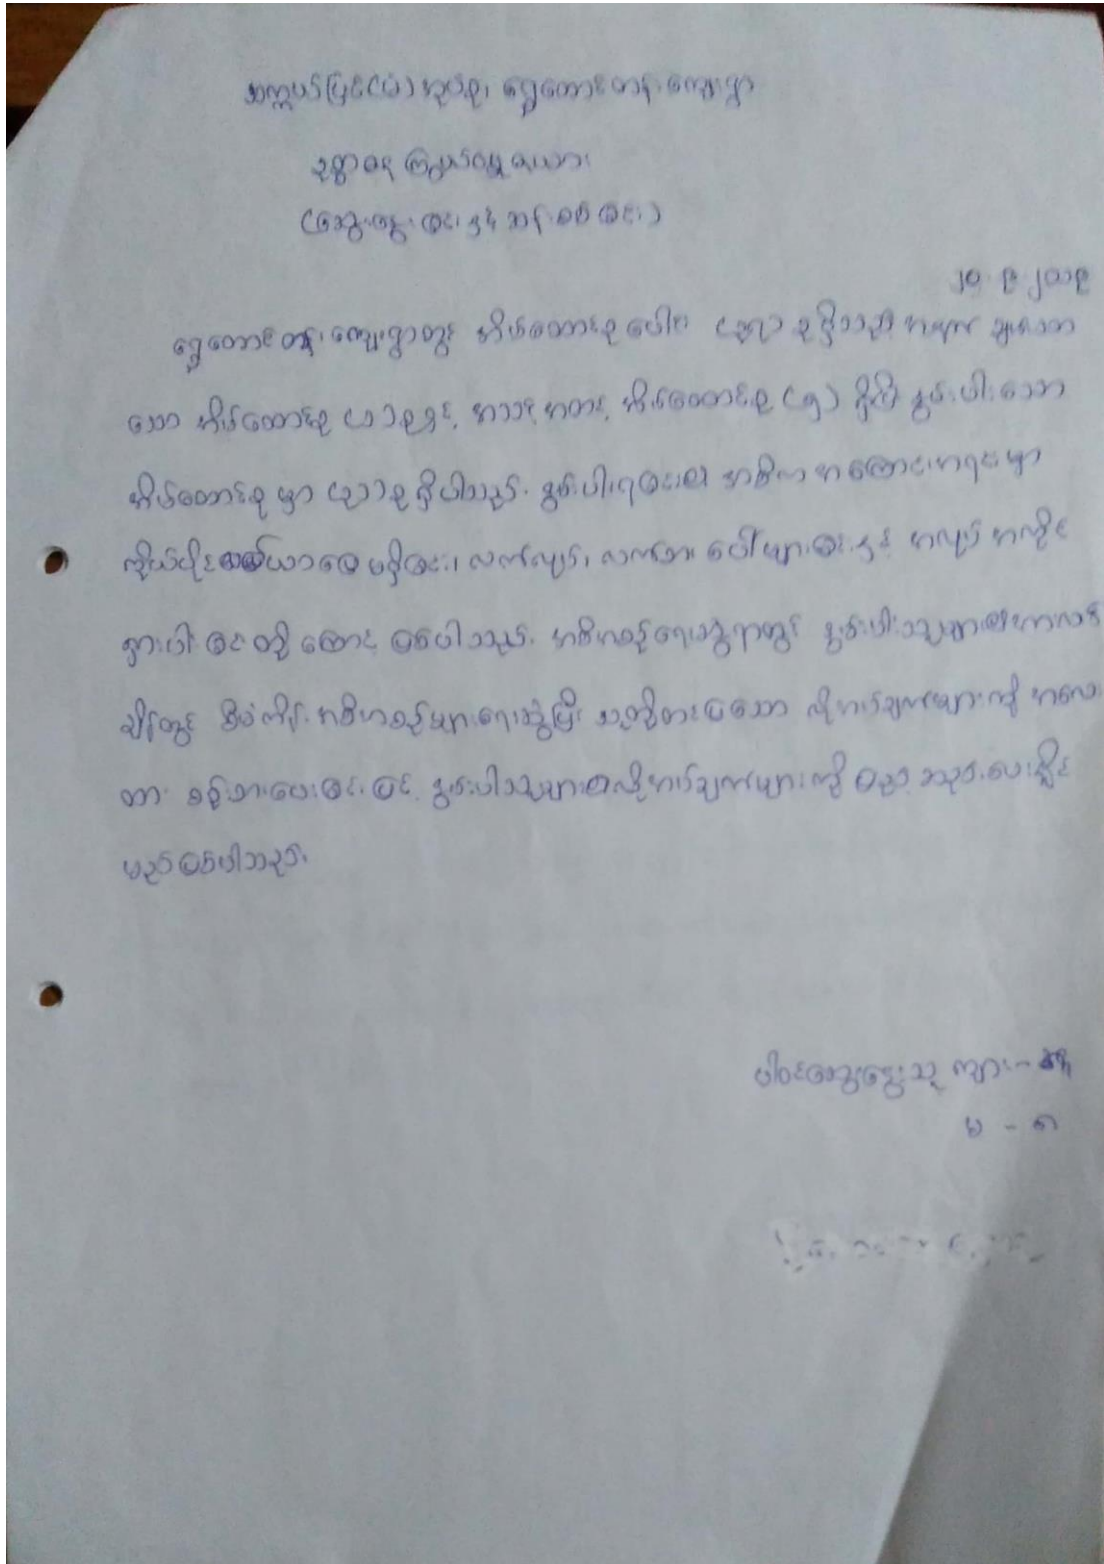 သက္ကယ်ပြင်(မ) အုပ်စု၊ ရွှေတောင်တန်း ကျေးရွာ
ဥစ္စာဓန ကြွယ်ဝမှု ဇယား
(ဆွေးနွေးခြင်းနှင့် ဆန်းစစ်ခြင်း)
၂၀.၉.၂၀၁၉
ရွှေတောင်တန်းကျေးရွာတွင် အိမ်ထောင်စုပေါင်း စုရှိသည့်အနက် ချမ်းသာ
သော အိမ်ထောင်စု စုနှင့် အသင့်အတင့် အိမ်ထောင်စု ရှိပြီး နွမ်းပါးသော
အိမ်ထောင်စုမှာ စုရှိပါသည်။ နွမ်းပါးရခြင်း၏ အဓိကအကြောင်းအရင်းမှာ
ကိုယ်ပိုင် လယ်ယာမြေ မရှိခြင်း၊ လက်လုပ်၊ လက်စား ပေါများခြင်းနှင့် အလုပ်အကိုင်
ရှားပါးခြင်းတို့ကြောင့် ဖြစ်ပါသည်။ အစီအစဉ်ရေးဆွဲရာတွင် နွမ်းပါးသူများ၏
ချိန်တွင် စီမံကိန်းအစီအစဉ်များရေးဆွဲပြီး သူတို့တင်ပြသော လိုအပ်ချက်များကို အလေး
ထား စဉ်းစားပေးခြင်းဖြင့် နွမ်းပါးသူများ၏လိုအပ်ချက်များကို ဖြည့်ဆည်းပေးနိုင်
မည်ဖြစ်ပါသည်။
ပါဝင်ဆွေးနွေးသူ ကျား -
မ - ၈